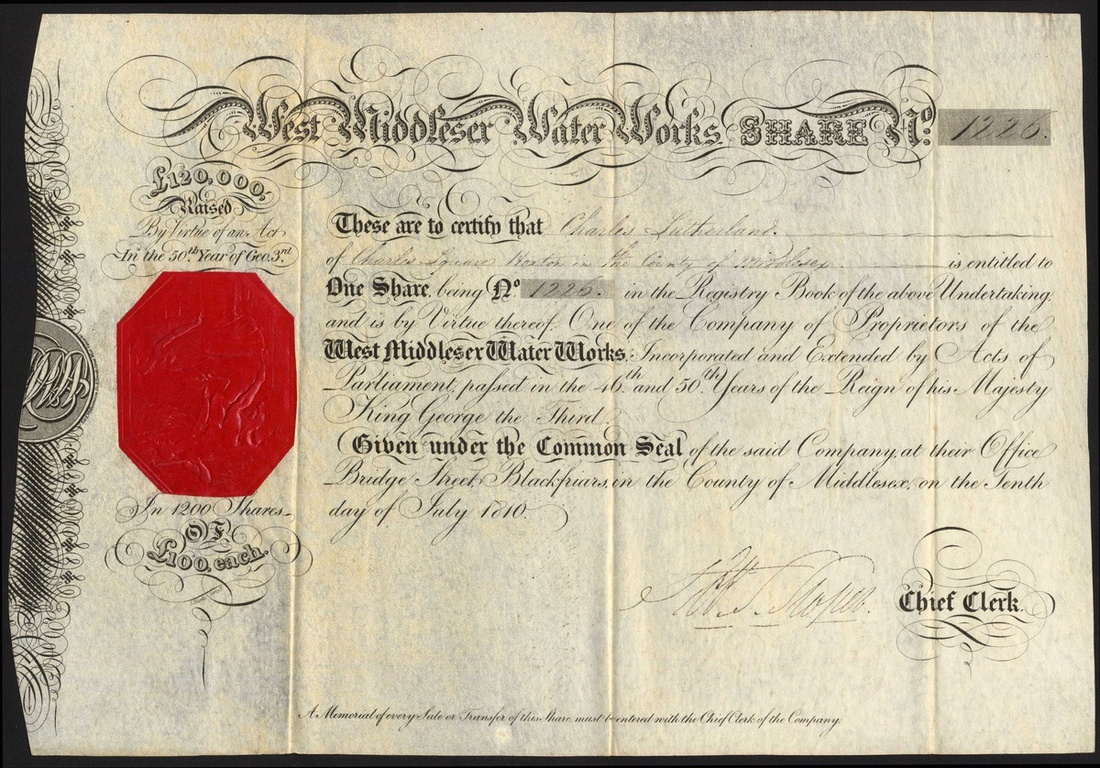 West Middlesex Water Works. SHARE No. 1226.
£120,000,
Raised
By Virtue of an Act
In the 50th Year of Geo. 3rd.
In 1200 Shares
OF
£100, each.
These are to certify that Charles Sutherland
of Charles Square Hoxton in the County of Middlesex is entitled to
One Share, being No 1226. in the Registry Book of the above Undertaking,
and is by Virtue thereof, One of the Company of Proprietors of the
West Middlesex Water Works, Incorporated and Extended by Acts of
Parliament, passed in the 46th and 50th Years of the Reign of his Majesty
King George the Third.
Given under the Common Seal of the said Company, at their Office
Bridge Street, Blackfriars, in the County of Middlesex, on the Tenth
day of July 1810.
Chief Clerk.
A Memorial of every Sale or Transfer of this Share, must be entered with the Chief Clerk of the Company.